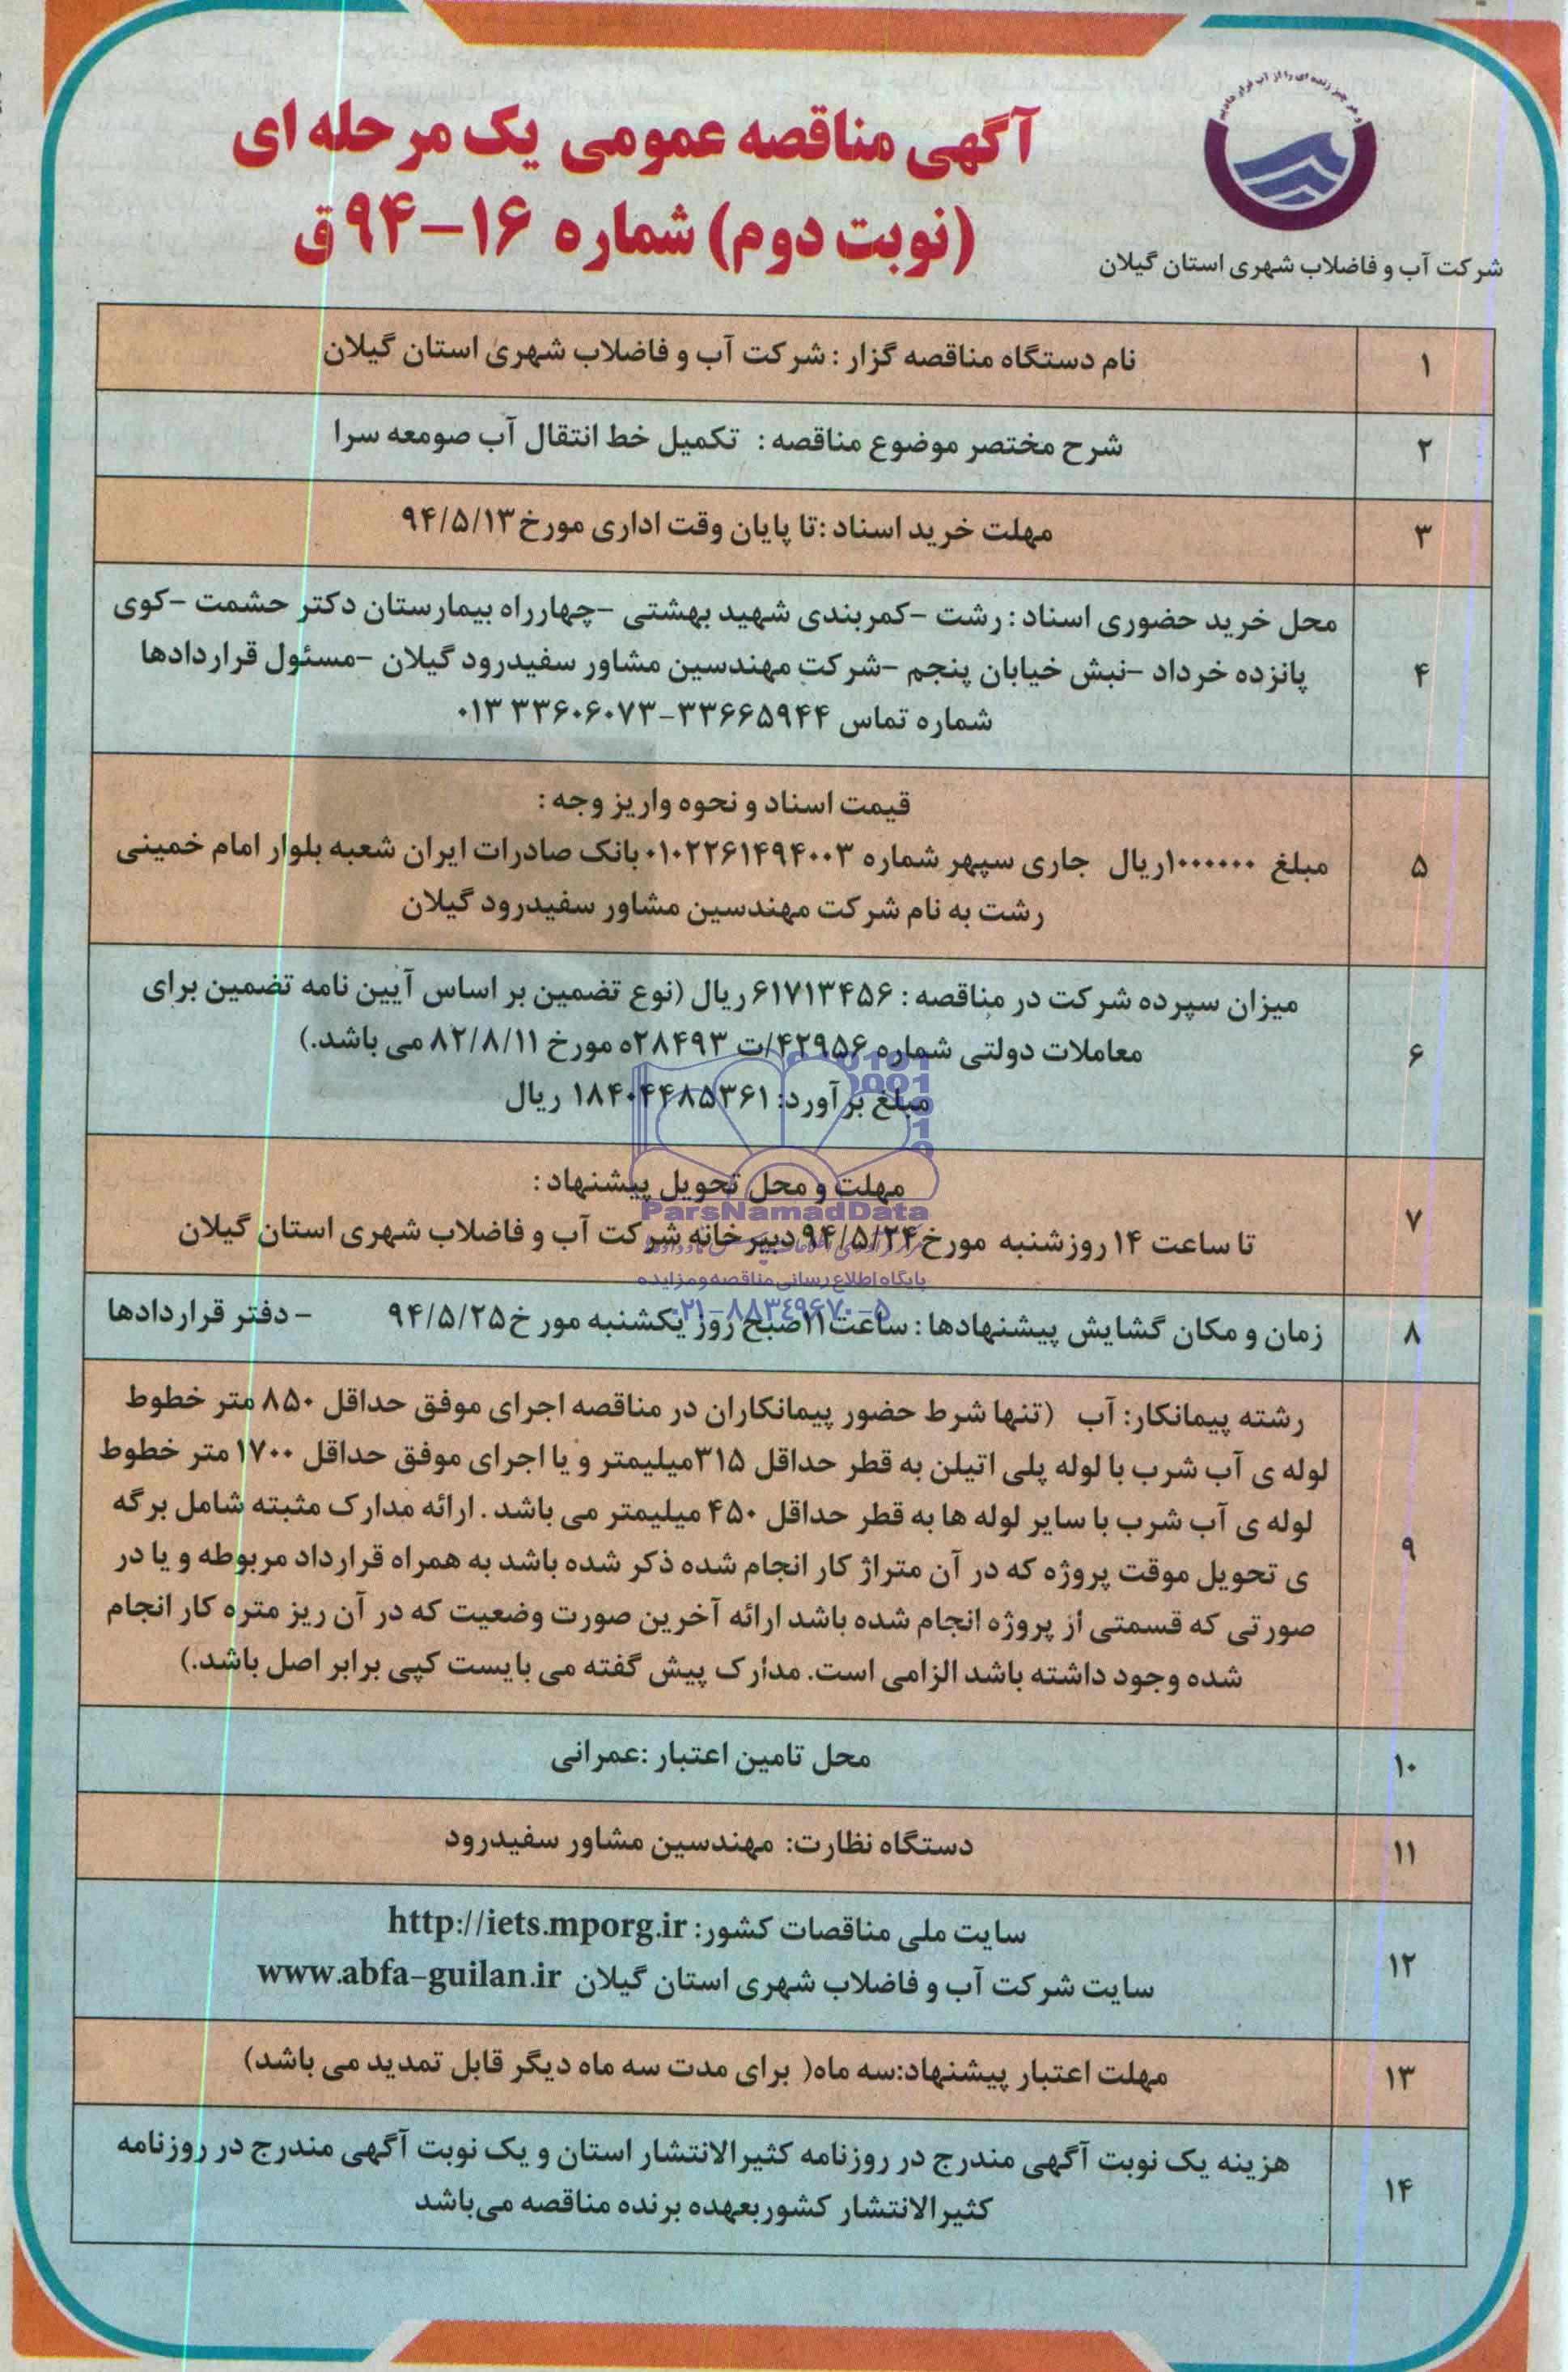 و هر چیز زنده ای را از آب قرار دادیم
شرکت آب و فاضلاب شهری استان گیلان
آگهی مناقصه عمومی یک مرحله ای
(نوبت دوم) شماره ۱۶-۹۴ق
۱ نام دستگاه مناقصه گزار : شرکت آب و فاضلاب شهری استان گیلان
۲ شرح مختصر موضوع مناقصه : تکمیل خط انتقال آب صومعه سرا
۳ مهلت خرید اسناد :تا پایان وقت اداری مورخ ۹۴/۵/۱۳
محل خرید حضوری اسناد : رشت -کمربندی شهید بهشتی -چهارراه بیمارستان دکتر حشمت -کوی
۴ پانزده خرداد -نبش خیابان پنجم -شرکت مهندسین مشاور سفیدرود گیلان -مسئول قراردادها
شماره تماس ۳۳۶۶۵۹۴۴-۳۳۶۰۶۰۷۳ ۰۱۳
قیمت اسناد و نحوه واریز وجه :
۵ مبلغ ۱۰۰۰۰۰۰ریال جاری سپهر شماره ۰۱۰۲۲۶۱۴۹۴۰۰۳بانک صادرات ایران شعبه بلوار امام خمینی
رشت به نام شرکت مهندسین مشاور سفیدرود گیلان
میزان سپرده شرکت در مناقصه : ۶۱۷۱۳۴۵۶ریال (نوع تضمین بر اساس آیین نامه تضمین برای
۶ معاملات دولتی شماره ۴۲۹۵۶/ت ۲۸۴۹۳ه مورخ ۸۲/۸/۱۱ می باشد.)
مبلغ برآورد: ۱۸۴۰۴۴۸۵۳۶۱ ریال
مهلت و محل تحویل پیشنهاد :
ParsNamadData
۷ تا ساعت ۱۴ روزشنبه مورخ ۹۴/۵/۲۴ دبیرخانه شرکت آب و فاضلاب شهری استان گیلان
پایگاه اطلاع رسانی مناقصه و مزایده
۰۲۱-۸۸۳۴۹۶۷۰-۵
۸ زمان و مکان گشایش پیشنهادها : ساعت۱۱صبح روز یکشنبه مورخ ۹۴/۵/۲۵ - دفتر قراردادها
رشته پیمانکار: آب (تنها شرط حضور پیمانکاران در مناقصه اجرای موفق حداقل ۸۵۰ متر خطوط
لوله ی آب شرب با لوله پلی اتیلن به قطر حداقل ۳۱۵میلیمتر و یا اجرای موفق حداقل ۱۷۰۰ متر خطوط
لوله ی آب شرب با سایر لوله ها به قطر حداقل ۴۵۰ میلیمتر می باشد . ارائه مدارک مثبته شامل برگه
۹ ی تحویل موقت پروژه که در آن متراژ کار انجام شده ذکر شده باشد به همراه قرارداد مربوطه و یا در
صورتی که قسمتی از پروژه انجام شده باشد ارائه آخرین صورت وضعیت که در آن ریز متره کار انجام
شده وجود داشته باشد الزامی است. مدارک پیش گفته می بایست کپی برابر اصل باشد.)
۱۰ محل تامین اعتبار :عمرانی
۱۱ دستگاه نظارت: مهندسین مشاور سفیدرود
سایت ملی مناقصات کشور: http://iets.mporg.ir
۱۲ سایت شرکت آب و فاضلاب شهری استان گیلان www.abfa-guilan.ir
۱۳ مهلت اعتبار پیشنهاد:سه ماه( برای مدت سه ماه دیگر قابل تمدید می باشد)
هزینه یک نوبت آگهی مندرج در روزنامه کثیرالانتشار استان و یک نوبت آگهی مندرج در روزنامه
۱۴ کثیرالانتشار کشوربعهده برنده مناقصه می‌باشد